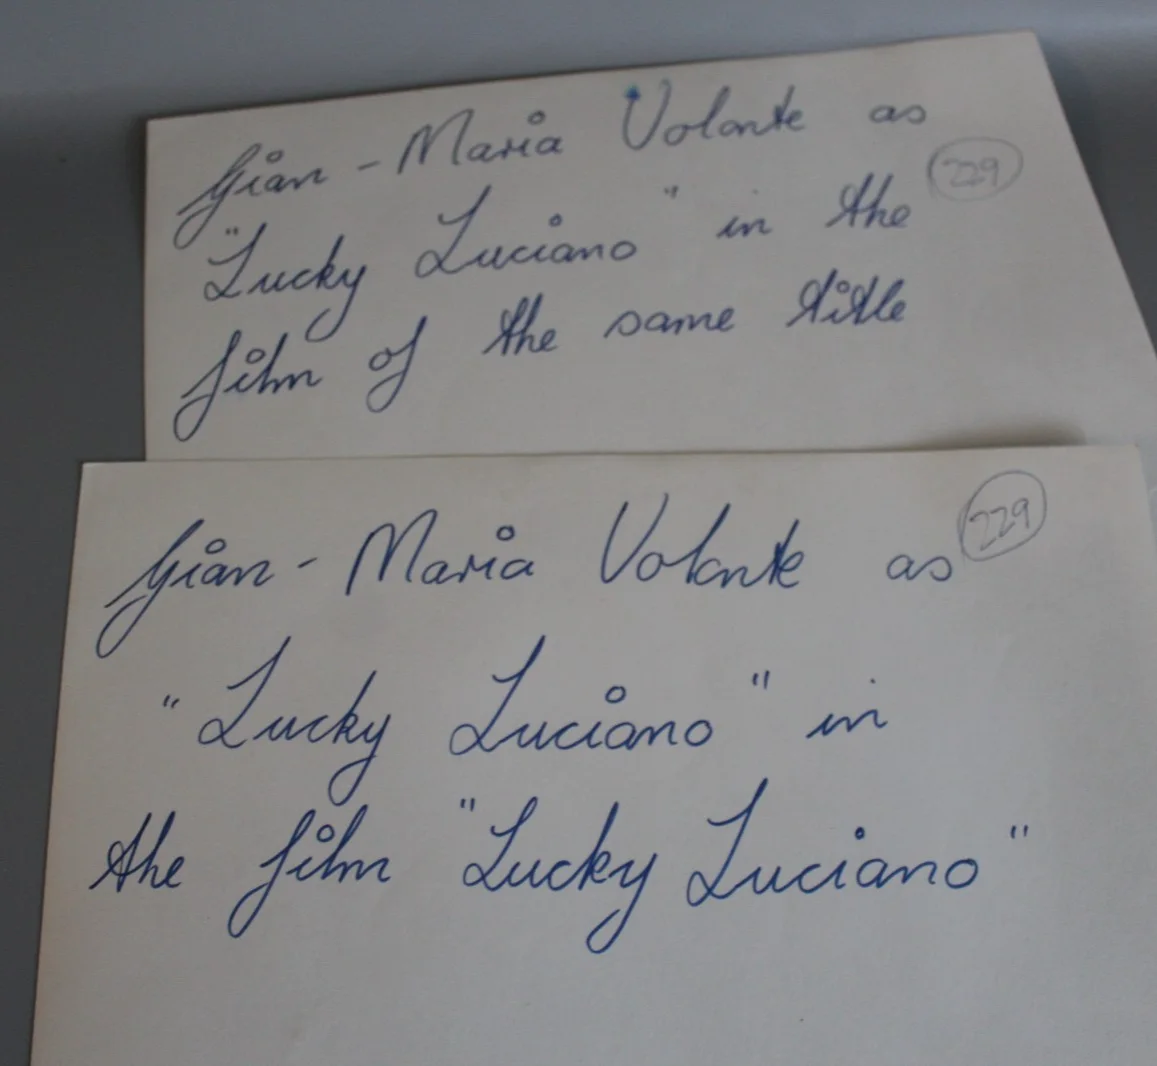 Gian - Maria Volonte as
229
"Lucky Luciano" in the
film of the same title
Gian - Maria Volonte as
229
"Lucky Luciano" in
the film "Lucky Luciano"